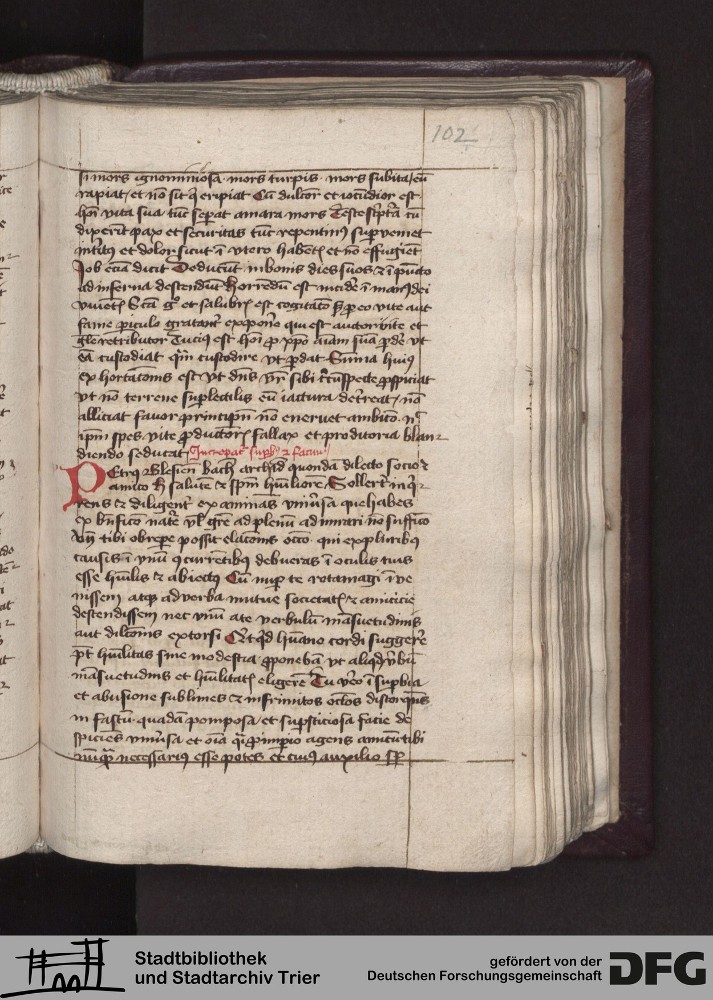 102
si mors ignominiosa mors turpis mors subita eū
rapiat et nō sit qͥ eripiat Cū dulcior et iocūdior est
hoī vita sua tūc sepat amara mors Teste scͥptͣa cū
dixerīt pax et securitas tūc repentinꝰ supveniet
īteritꝰ et dolor sicut ī vtero habentꝭ et nō effugiēt
Job eciā dicit Deducūt in bonis dies suos ⁊ ī pūcto
ad inferna descendūt Horrendū est incidere ī manꝰ dei
viventꝭ Scā gͦ et salubrꝭ est cogitacō
fame piculo gratantr exponere qui est auctor vite et
gle retributor Tucius est hoī ꝓ xpō aīam suā ꝑdere vt
eā custodiat qͣm custodire vt ꝑdat Summa huiꝰ
exhortacionis est vt dn̄s vr̄ sibi prospiciat
vt nō terrene suplectilis eū iactura deterreat nō
alliciat favor principū nō enervet ambicio
ipm spes vite ꝓductiorꝭ fallax et proditoria blan
diendo seducat Increpat supbū
Petrꝰ Blesen̄ bath archid quondā dilecto socio ⁊
amico salutē ⁊ spm hūiliorē Sollerter inqͥ
rens ⁊ diligentr examinans vniūsa que habes
ex bn̄ficio nature vl grē ad plenū admirari nō sufficio
vn̄ tibi obrepe possit elacionis occō qui ex pluribꝰ
causis ī vnū ꝯcurrentibꝰ debueras ī oculis tuis
esse hūilis ⁊ abiectꝰ Cū nup te rotamagi īve
nissem atqꝫ ad verba mutue societatꝭ ⁊ amicicie
descendissem nec vnū a te verbulū māsuetudinis
aut dilcōnis extorsi Qͥcqͥd hūano cordi suggerere
pt hūilitas sive modestia ꝓponebā vt aliqͥd vbū
māsuetudinis et hūilitatꝭ eligerē Tu vero ī supbia
et abusione sublimes ⁊ infrunitos oclos distorquēs
in fastū quadā pomposa et supsticiosa facie de
spicies vniūsa et oīa qͣi ꝓ impio agens amicū tibi
nūqͣ necessariꝰ esse potes et cuiꝰ auxilio
Stadtbibliothek
und Stadtarchiv Trier
gefördert von der
Deutschen Forschungsgemeinschaft
DFG